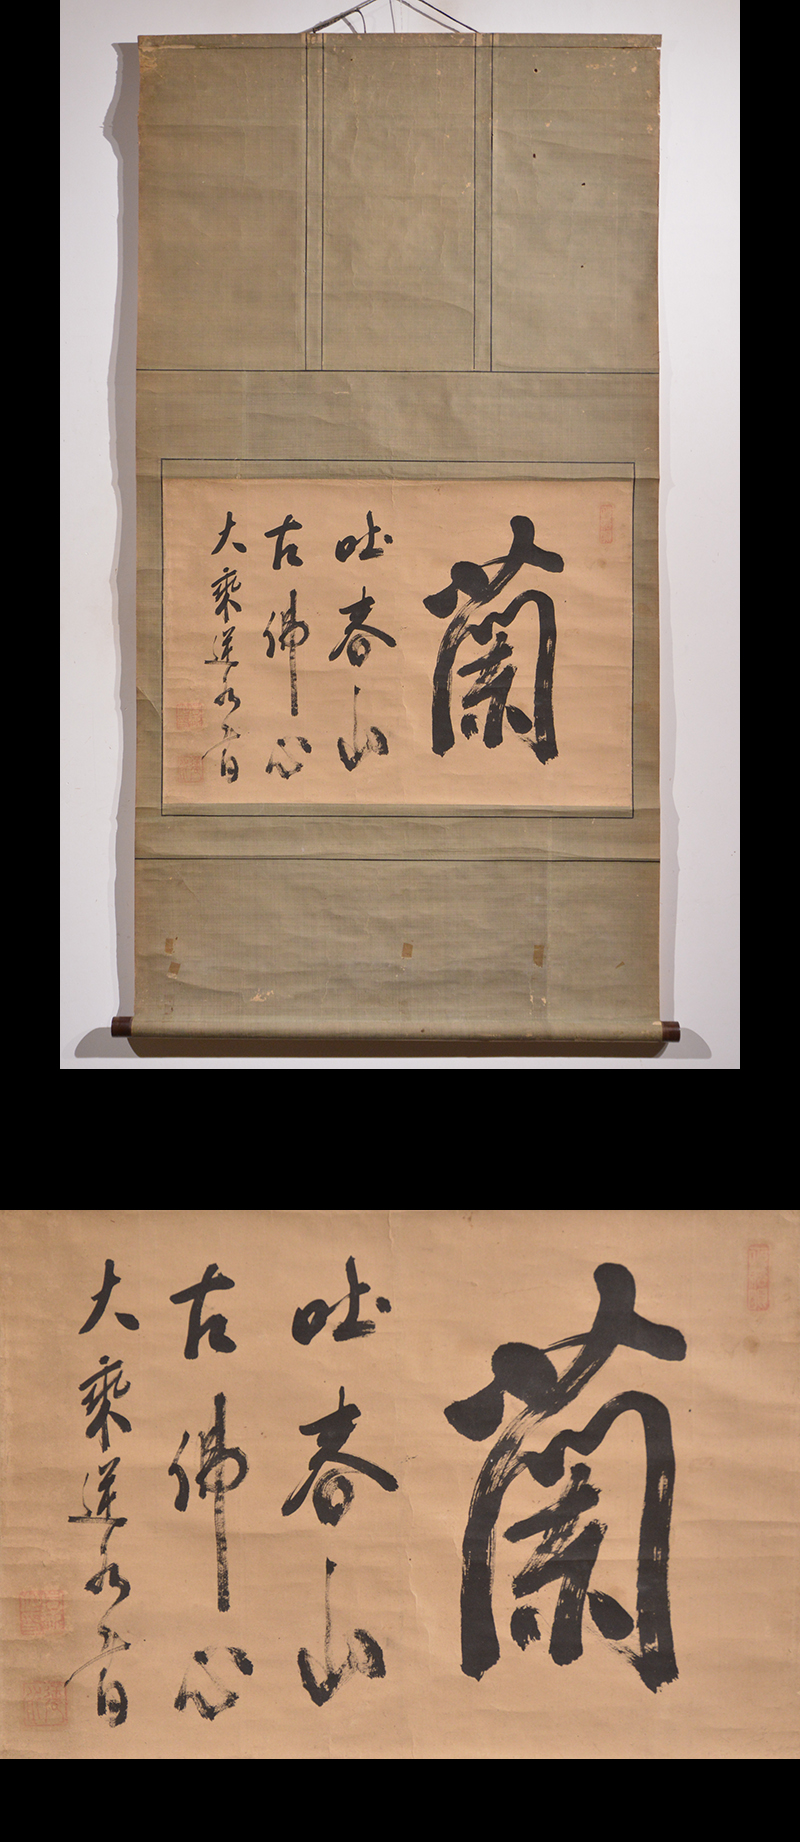 蘭
吐春山
古佛心
大乘逆水
蘭
吐春山
古佛心
大乘逆水